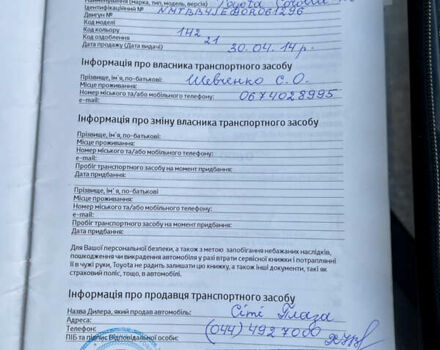 Найменування (марка, тип, модель, версія) Toyota Corolla
Ідентифікаційний №
Двигун №
Код моделі
Код кольору 1H2
Код оздоблення 21
Дата продажу (Дата видачі) 30.04.14р.
Інформація про власника транспортного засобу
Прізвище, ім'я, по-батькові: Шевченко С.О.
Місце проживання:
Номер міського та/або мобільного телефону: 0674028995
e-mail:
Інформація про зміну власника транспортного засобу
Прізвище, ім'я, по-батькові:
Місце проживання:
Номер міського та/або мобільного телефону:
e-mail:
Пробіг транспортного засобу на момент придбання:
Дата придбання:
Прізвище, ім'я, по-батькові
Місце проживання:
Номер міського та/або мобільного телефону:
e-mail:
Пробіг транспортного засобу на момент придбання:
Дата придбання:
Для Вашої персональної безпеки, а також з метою запобігання небажаних наслідків,
пошкодження чи викрадення автомобіля у разі втрати сервісної книжки і потраплянні
її в чужі руки, Toyota не радить залишати цю книжку, а також інші документи, такі як
страховий поліс, тощо, в автомобілі.
Інформація про продавця транспортного засобу
Назва Дилера, який продав автомобіль: Сіті Плаза
Адреса:
Телефон: (044) 4927000
ПІБ та підпис Відповідальної особи: